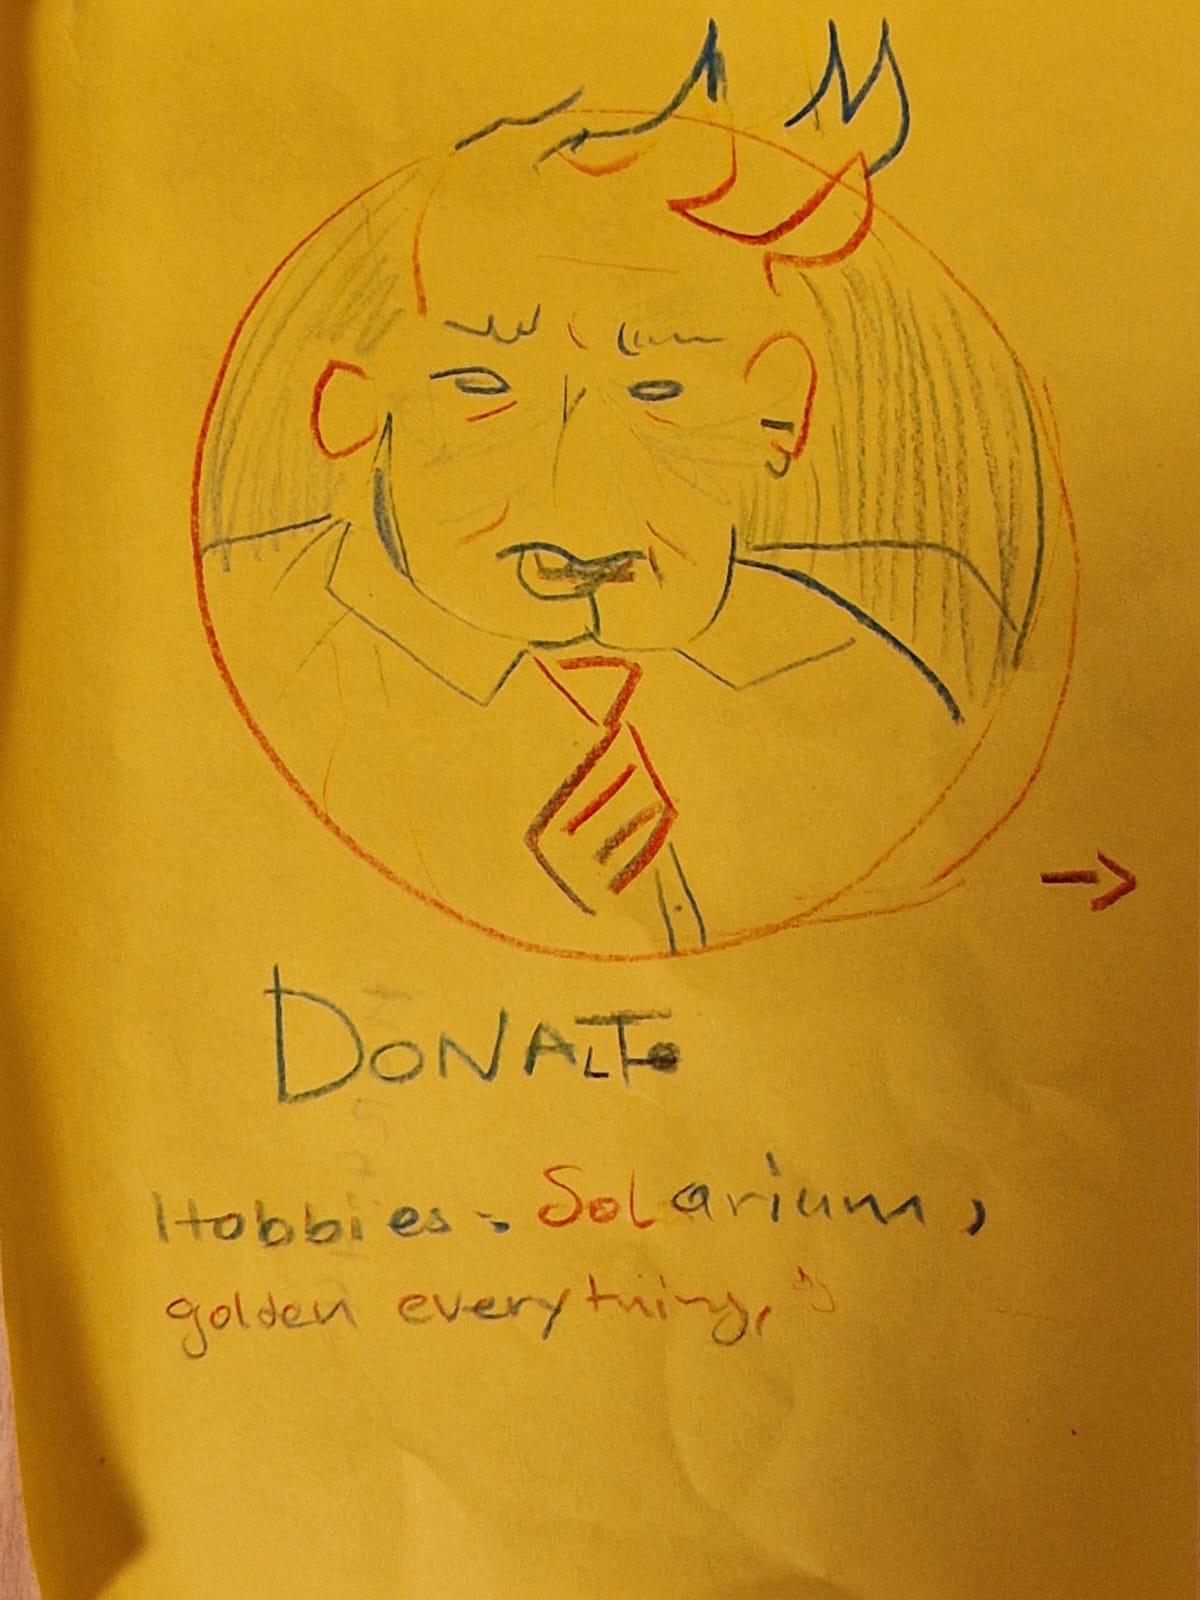 DONALT
Hobbies: Solarium,
golden everything,